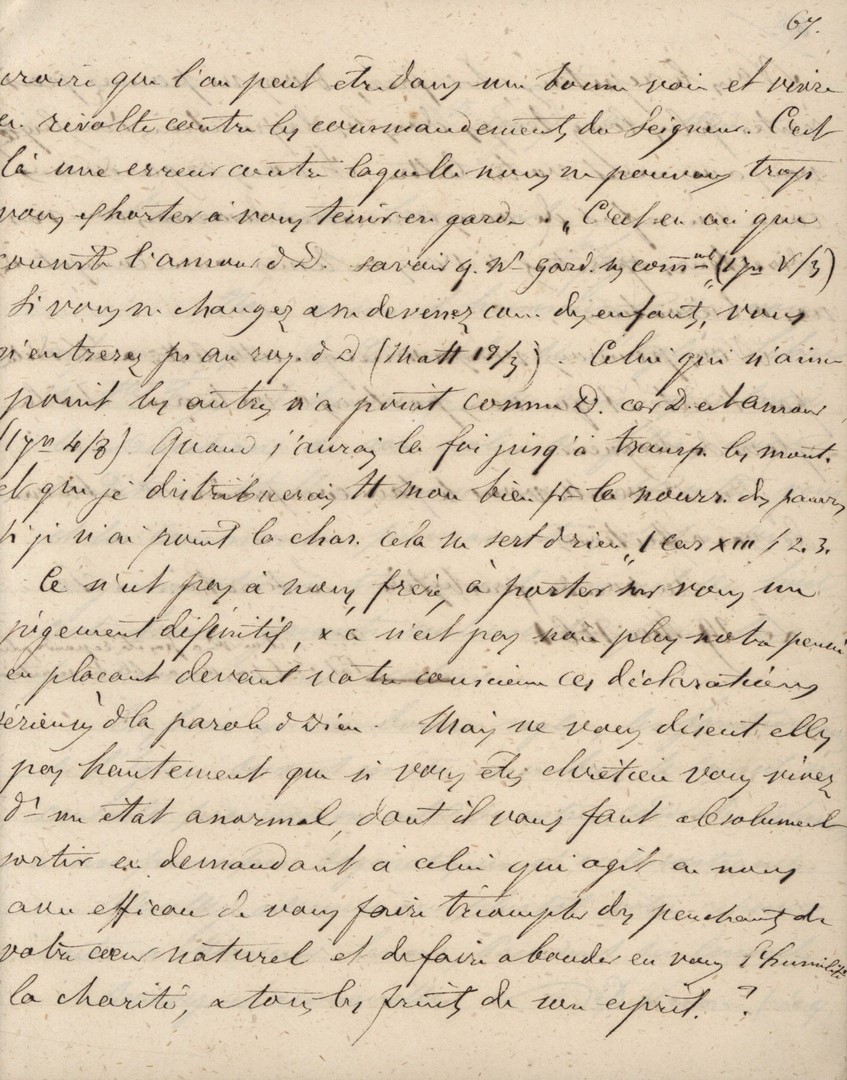 67.
croire que l'on peut être dans une bonne voie et vivre
en révolte contre les commandements du Seigneur. C'est
là une erreur contre laquelle nous ne pouvons trop
vous exhorter à vous tenir en garde. „C'est en ceci que
consiste l'amour d D. savoir q. ns gard. ses commnts (1 Jn V/3)
Si vous ne changez & ne devenez com. des enfants, vous
n'entrerez ps au roy. d D (Matt 18/3). Celui qui n'aime
point les autres n'a point connu D. car D. est amour
(1 Jn 4/8). Quand j'aurais la foi jusq'à transp. les mont.
et que je distribuerais tt mon bien pr la nourr. des pauvres
si je n'ai point la char. cela ne sert d rien" 1 Cor XIII / 2. 3.
Ce n'est pas à nous, frère, à porter sur vous un
jugement définitif, & ce n'est pas non plus notre pensée
en plaçant devant votre conscience ces déclarations
sérieuses d la parole d Dieu. Mais ne vous disent elles
pas hautement que si vous êtes chrétien vous vivez
ds un état anormal, dont il vous faut absolument
sortir en demandant à celui qui agit en nous
avec efficace de vous faire triompher des penchants de
votre cœur naturel et de faire abonder en vous l'humilité
la charité, & tous les fruits de son esprit. ?